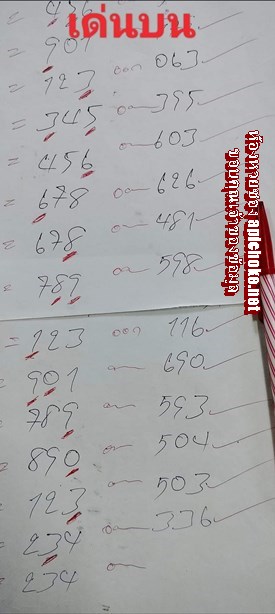 เด่นบน
= 456
= 901 ออก 063
= 123 ออก 395
= 345 ออ 603
= 456 ออ 626
= 678 ออ 481
= 678 ออ 598
= 789
= 123 ออก 116
= 901 ออ 690
789 ออ 593
890 ออ 504
123 ออ 503
234 ออ 336
234 ออ
ห้องหวยซอง aplchoke.net
ขอบคุณเจ้าของข้อมูล